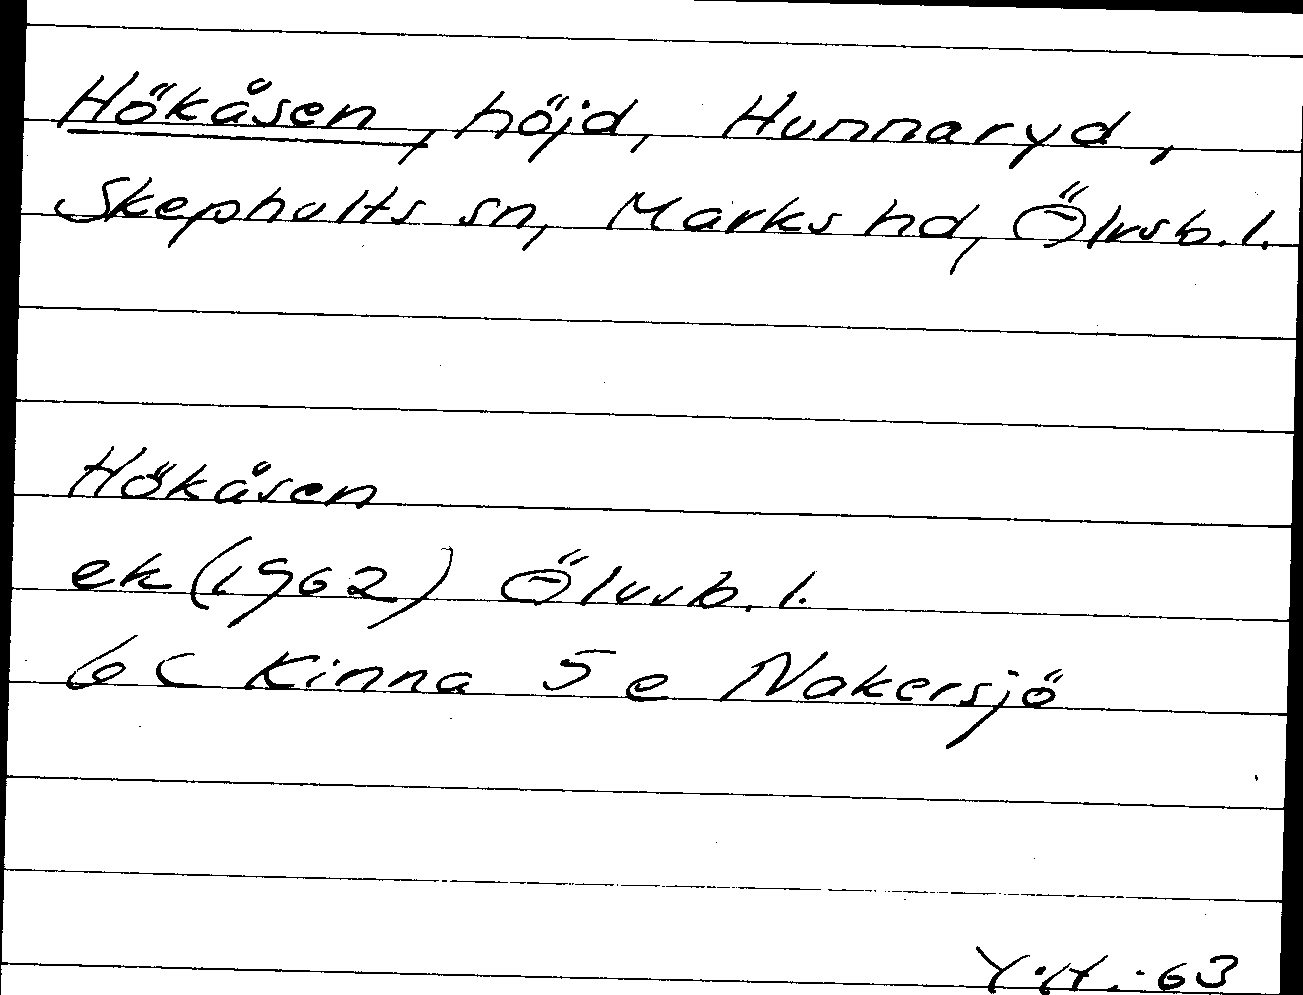 Hökåsen, höjd, Hunnaryd,
Skephults sn, Marks hd, Älvsb. l.
Hökåsen
ek (1962) Älvsb. l.
6 C Kinna 5 e Nakersjö
Y.H. -63